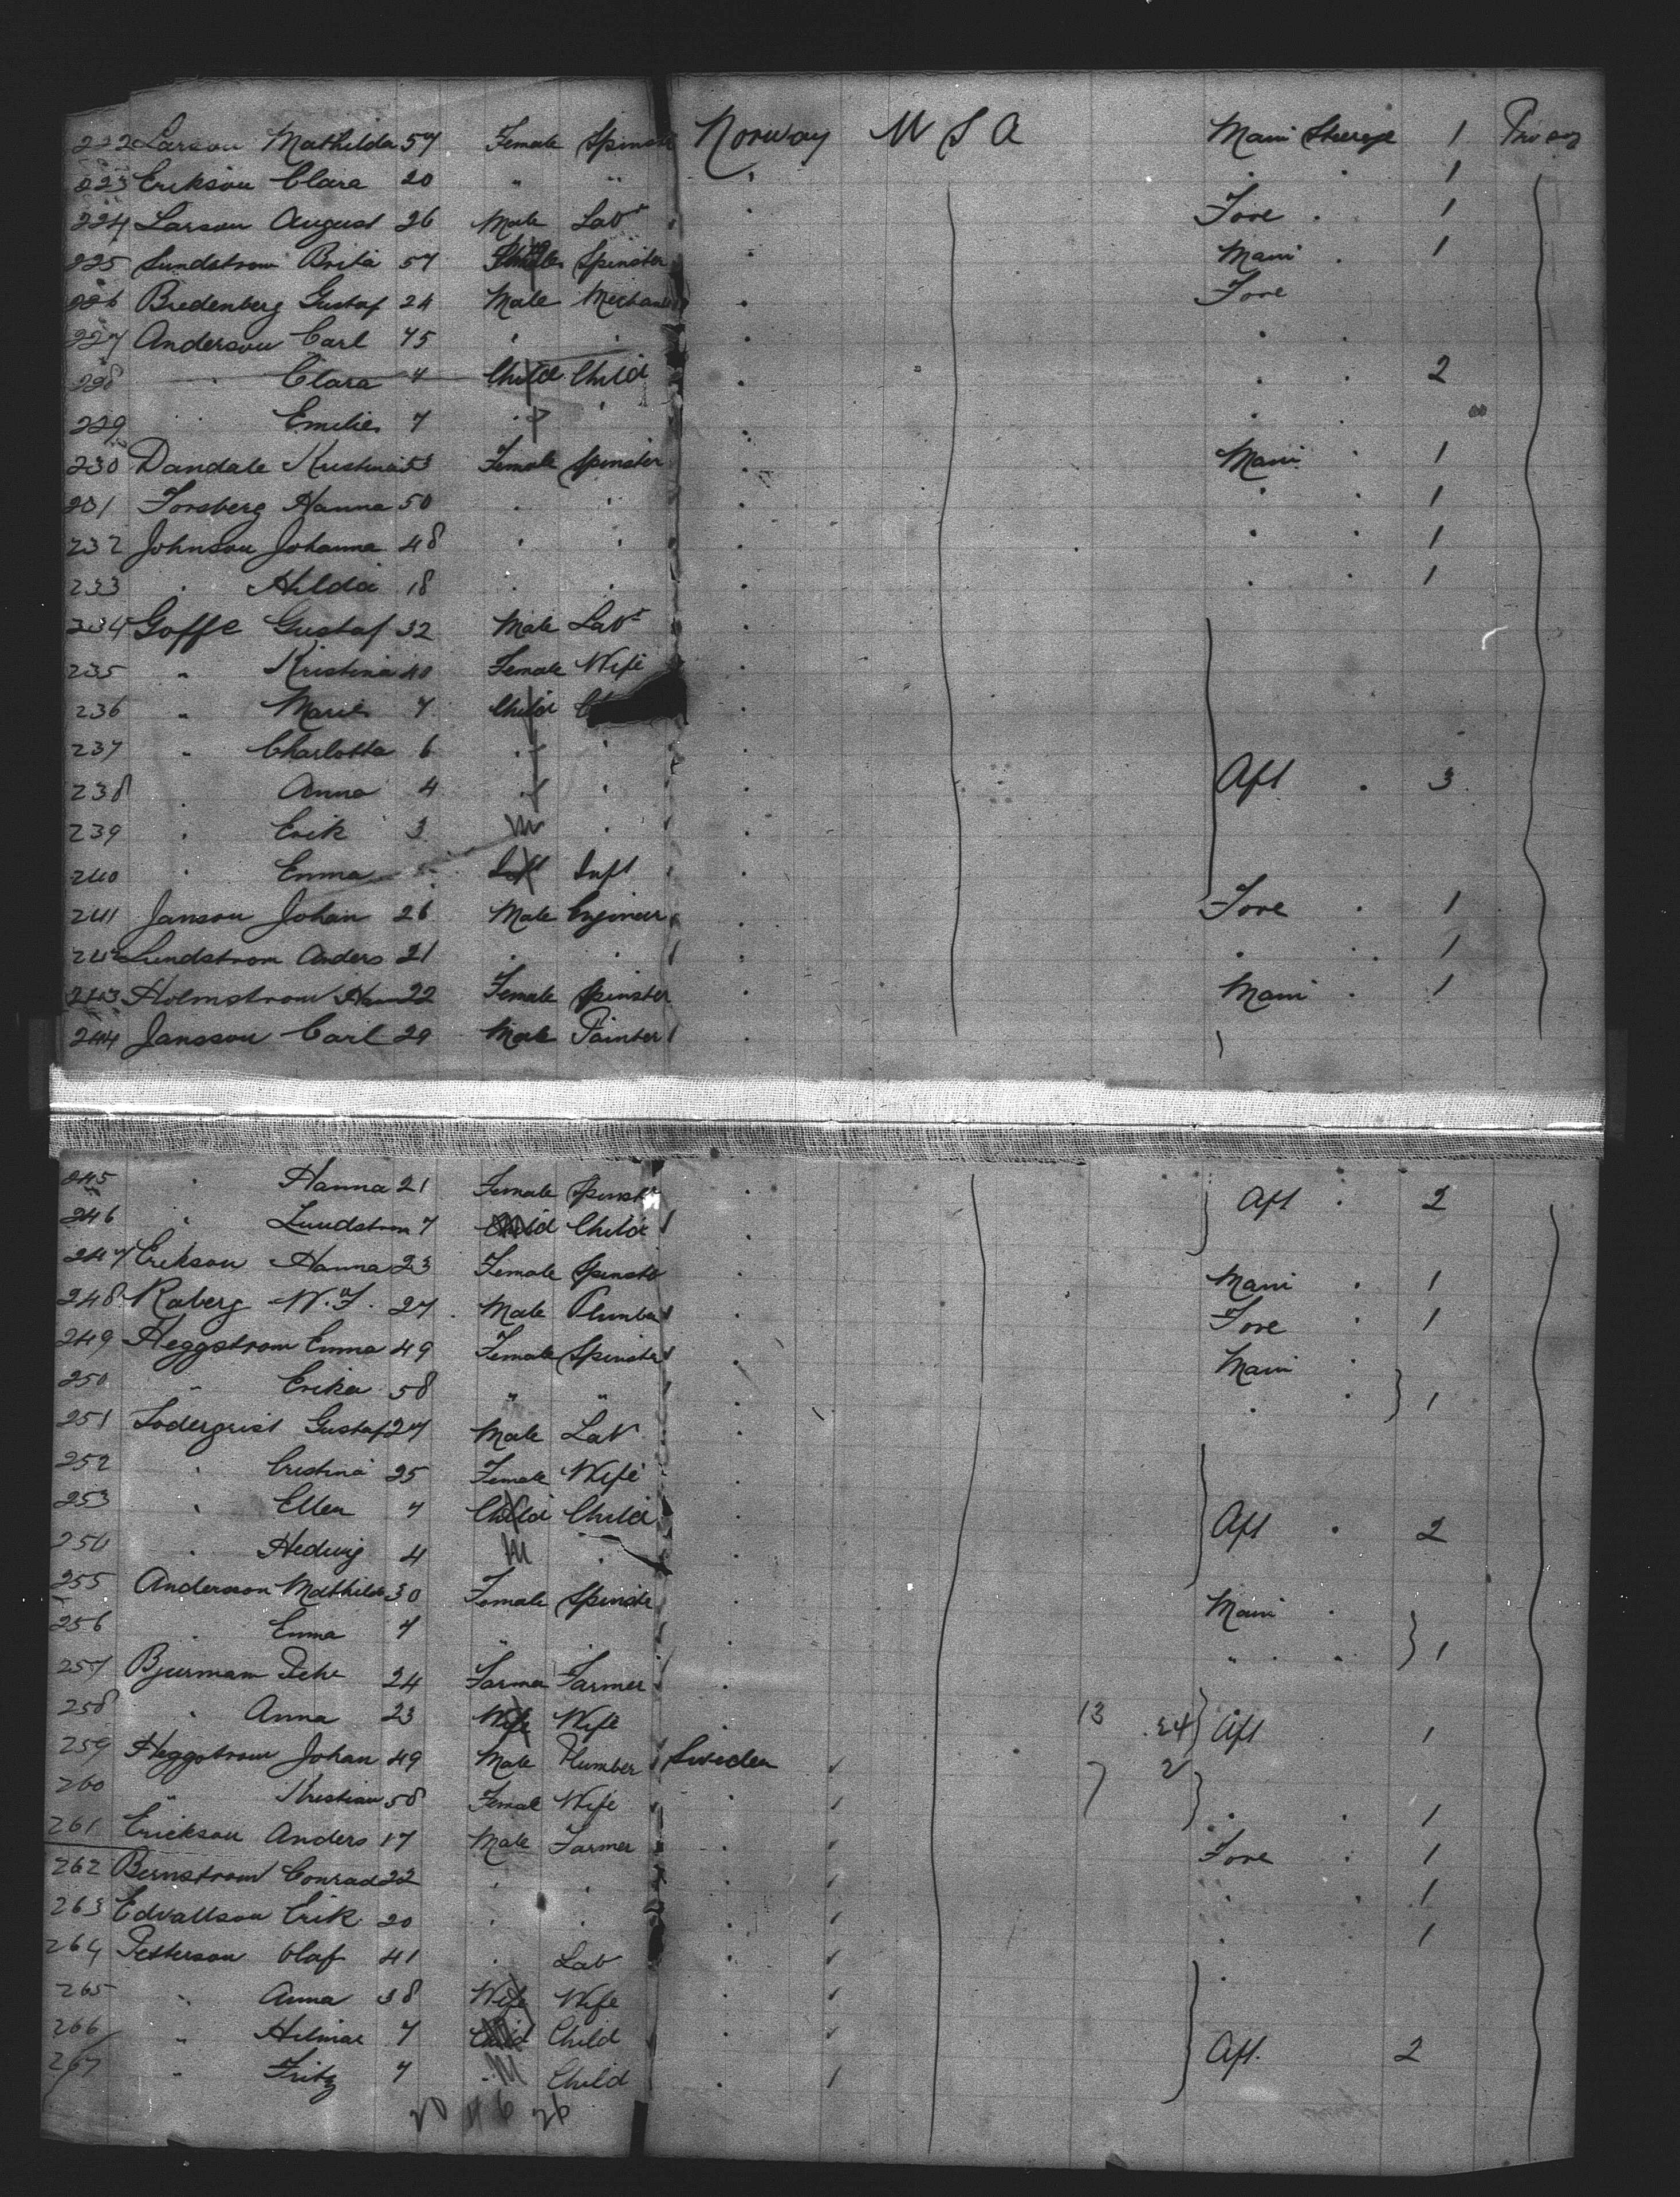 222 Larson Mathilda 57 Female Spinster Norway U S A Main Steerage 1
223 Erikson Clara 20 " " 1
224 Larson August 26 Male Labr Fore 1
225 Sundstrom Brita 57 Spinster Main 1
226 Bredenberg Gustaf 24 Male Mechanic Fore
227 Anderson Carl 45
228 " Clara 4 Child Child 2
229 " Emilie 7
230 Dandale Kristina 53 Female Spinster Main 1
231 Forsberg Hanna 50 1
232 Johnson Johanna 48 1
233 " Hilda 18 1
234 Goffe Gustaf 32 Male Labr
235 " Kristina 40 Female Wife
236 " Marie 7 Child
237 " Charlotta 6
238 " Anna 4 Aft 3
239 " Erik 3 M
240 " Emma Inft Inft
241 Janson Johan 26 Male Engineer Fore 1
242 Lundstrom Anders 21 1
243 Holmstrom 22 Female Spinster Main 1
244 Jansson Carl 29 Male Painter
245 " Hanna 21 Female Spinster Aft 2
246 " Lundstrom 7 Child Child
247 Erikson Hanna 23 Female Spinster Main 1
248 Raberg W. F. 27 Male Plumber Fore 1
249 Heggstrom Emma 49 Female Spinster Main
250 " Erika 58 " " 1
251 Sodergrist Gustaf 27 Male Lab
252 " Cristina 25 Female Wife
253 " Ellen 7 Child Child Aft 2
254 " Hedwig 4 M
255 Anderson Mathilda 30 Female Spinster Main
256 " Emma 7 " 1
257 Bjurman 24 Farmer Farmer
258 " Anna 23 Wife Wife 13 24 Aft 1
259 Heggstrom Johan 49 Male Plumber Sweden 7 2
260 " Kristian 58 Female Wife 1
261 Erickson Anders 17 Male Farmer Fore 1
262 Bernstrom Conrad 22 1
263 Edvallson Erik 20 1
264 Petterson Olaf 41 Lab
265 " Anna 38 Wife Wife
266 " Hilmar 7 Child Child Aft. 2
267 " Fritz 7 M Child
20 46 26